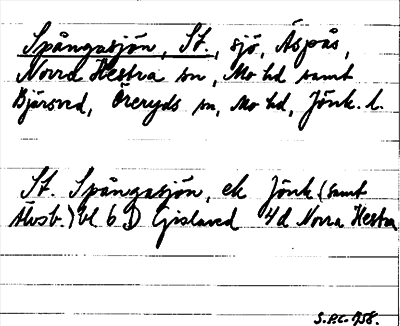 Spångasjön, St., sjö, Äspås,
Norra Hestra sn, Mo hd samt
Bjärsved, Öreryds sn, Mo hd, Jönk. l.
St. Spångasjön, ek Jönk (samt
Älvsb.) bl 6 D Gislaved 4d Norra Hestra
S.P.C. 1958.